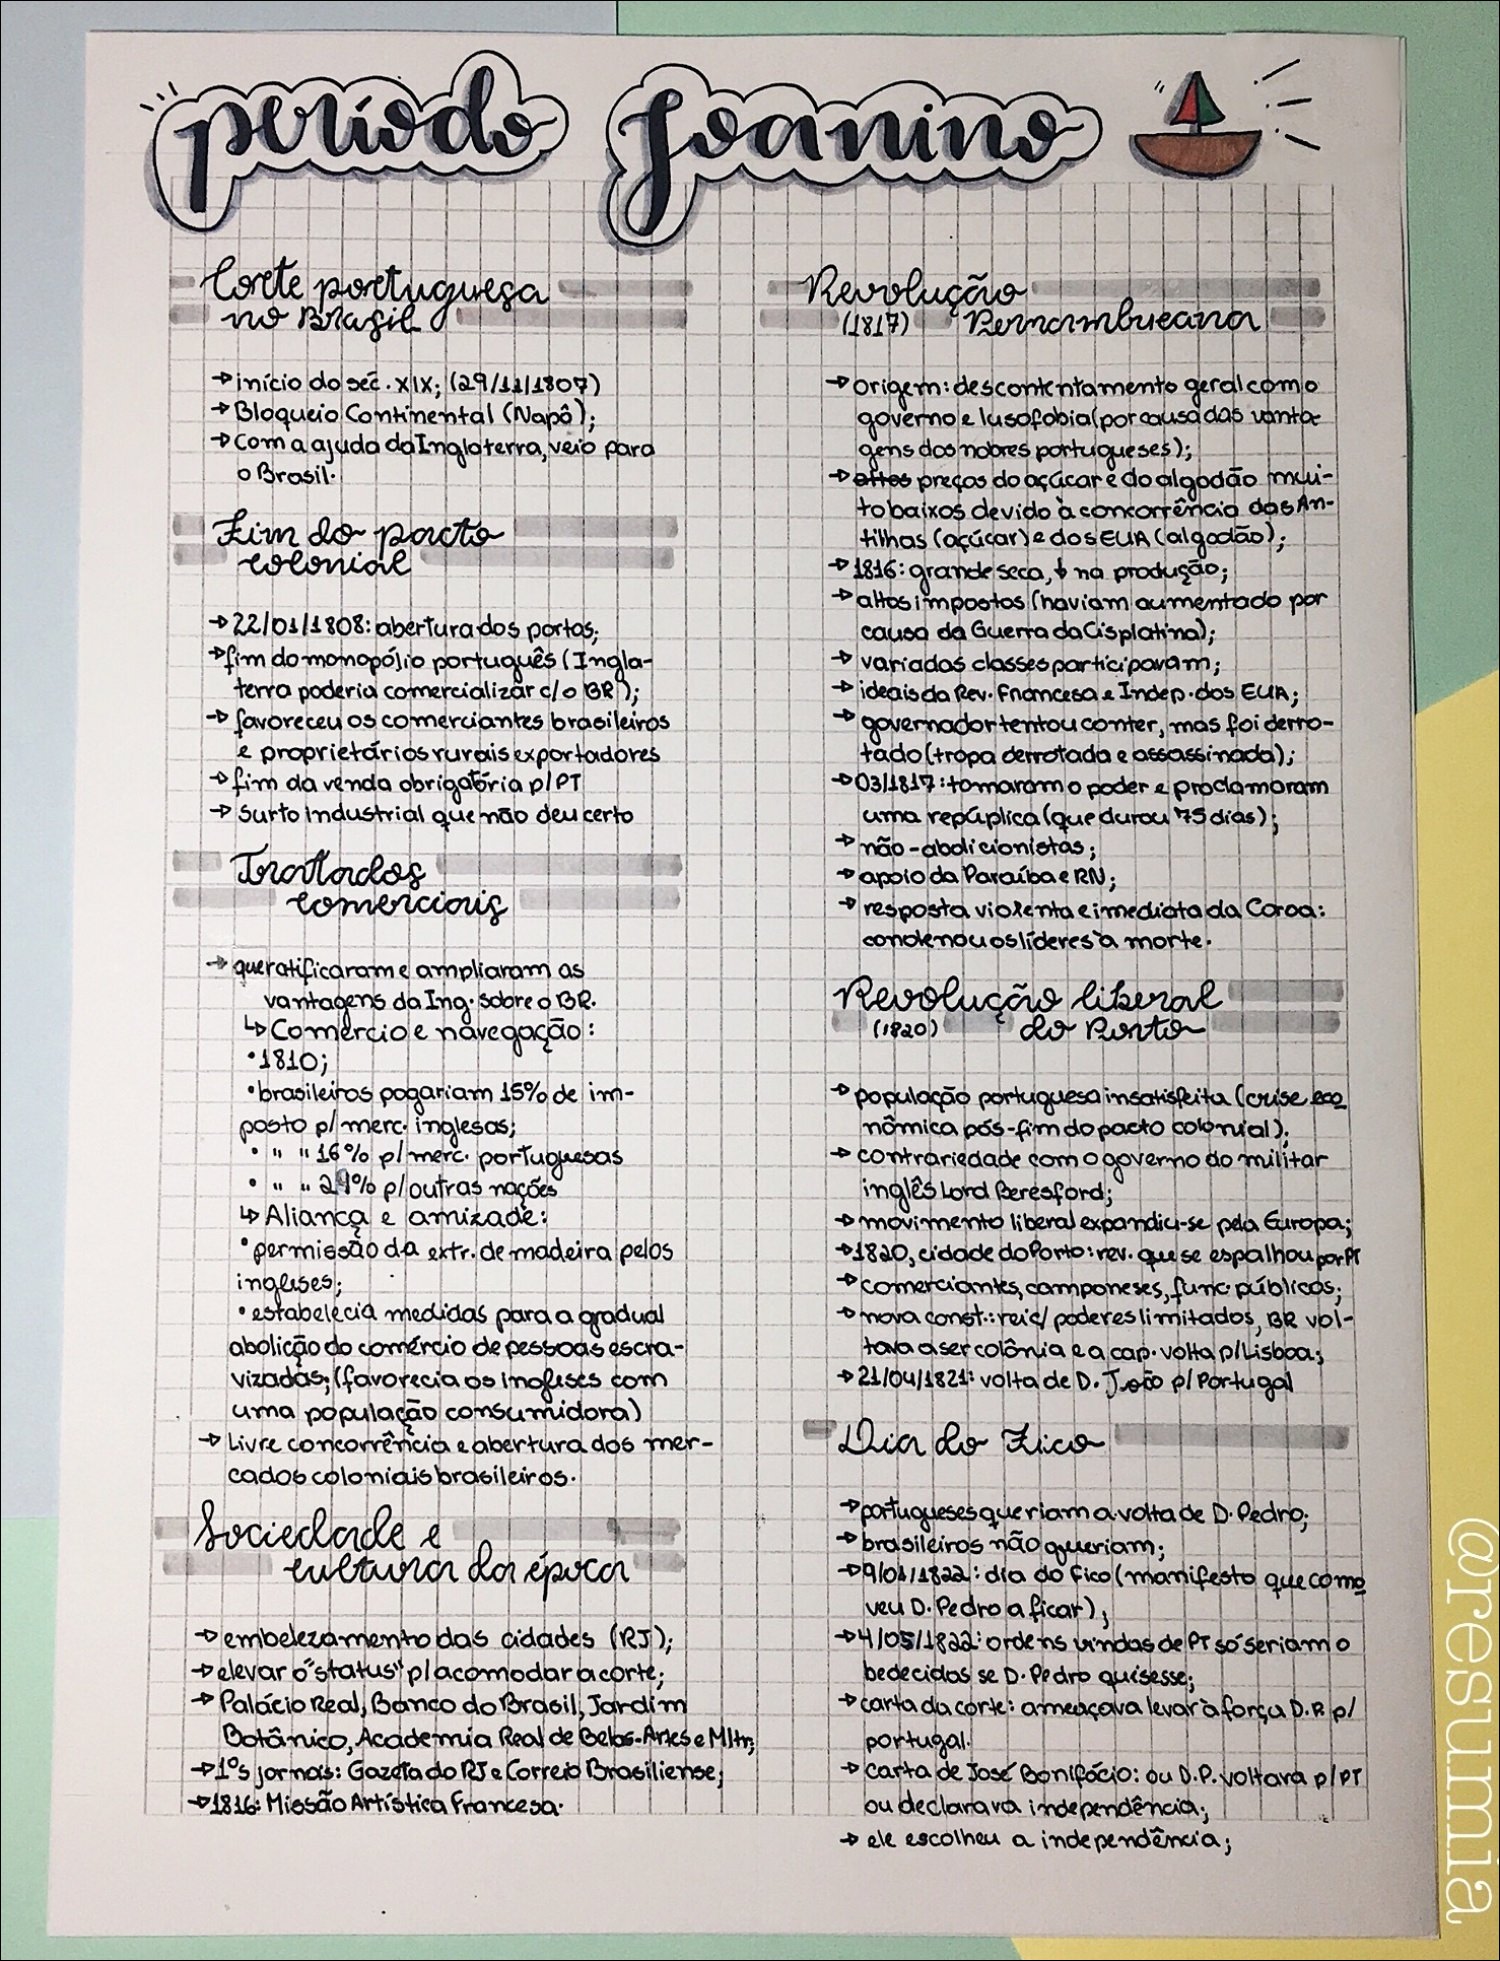 período Joanino
Corte portuguesa
no Brasil
→ início do séc. XIX; (29/11/1807)
→ Bloqueio Continental (Napô);
→ Com a ajuda da Inglaterra, veio para
o Brasil.
Fim do pacto
colonial
→ 22/01/1808: abertura dos portos;
→ fim do monopólio português (Ingla-
terra poderia comercializar c/ o BR);
→ favoreceu os comerciantes brasileiros
e proprietários rurais exportadores
→ fim da venda obrigatória p/ PT
→ Surto Industrial que não deu certo
Tratados
comerciais
→ que ratificaram e ampliaram as
vantagens da Ing. sobre o BR.
↳ Comércio e navegação:
• 1810;
• brasileiros pagariam 15% de im-
posto p/ merc. inglesas;
• " " 16% p/ merc. portuguesas
• " " 29% p/ outras nações
↳ Aliança e amizade:
• permissão da extr. de madeira pelos
ingleses;
• estabelecia medidas para a gradual
abolição do comércio de pessoas escra-
vizadas; (favorecia os ingleses com
uma população consumidora)
→ Livre concorrência e abertura dos mer-
cados coloniais brasileiros.
Sociedade e
cultura da época
→ embelezamento das cidades (RJ);
→ elevar o "status" p/ acomodar a corte;
→ Palácio Real, Banco do Brasil, Jardim
Botânico, Academia Real de Belas-Artes e Mltr;
→ 1ºs jornais: Gazeta do RJ e Correio Brasiliense;
→ 1816: Missão Artística Francesa.
Revolução
(1817) Pernambucana
→ origem: descontentamento geral com o
governo e lusofobia (por causa das vanta-
gens dos nobres portugueses);
→ altos preços do açúcar e do algodão mui-
to baixos devido à concorrência das An-
tilhas (açúcar) e dos EUA (algodão);
→ 1816: grande seca, ↓ na produção;
→ altos impostos (haviam aumentado por
causa da Guerra da Cisplatina);
→ variadas classes participavam;
→ ideais da Rev. Francesa e Indep. dos EUA;
→ governador tentou conter, mas foi derro-
tado (tropa derrotada e assassinada);
→ 03/1817: tomaram o poder e proclamaram
uma repúplica (que durou 75 dias);
→ não-abolicionistas;
→ apoio da Paraíba e RN;
→ resposta violenta e imediata da Coroa:
condenou os líderes à morte.
Revolução liberal
(1820) do Porto
→ população portuguesa insatisfeita (crise eco
nômica pós-fim do pacto colonial);
→ contrariedade com o governo do militar
inglês Lord Beresford;
→ movimento liberal expandiu-se pela Europa;
→ 1820, cidade do Porto: rev. que se espalhou por PT
→ comerciantes, camponeses, func. públicos;
→ nova const.: rei c/ poderes limitados, BR vol-
tava a ser colônia e a cap. volta p/ Lisboa;
→ 21/04/1821: volta de D. João p/ Portugal
Dia do Fico
→ portugueses queriam a volta de D. Pedro;
→ brasileiros não queriam;
→ 9/01/1822: dia do fico (manifesto que como
veu D. Pedro a ficar);
→ 4/05/1822: ordens vindas de PT só seriam o
bedecidas se D. Pedro quisesse;
→ carta da corte: ameaçava levar à força D.P. p/
portugal.
→ carta de José Bonifácio: ou D.P. voltava p/ PT
ou declarava independência;
→ ele escolheu a independência;
@resumia